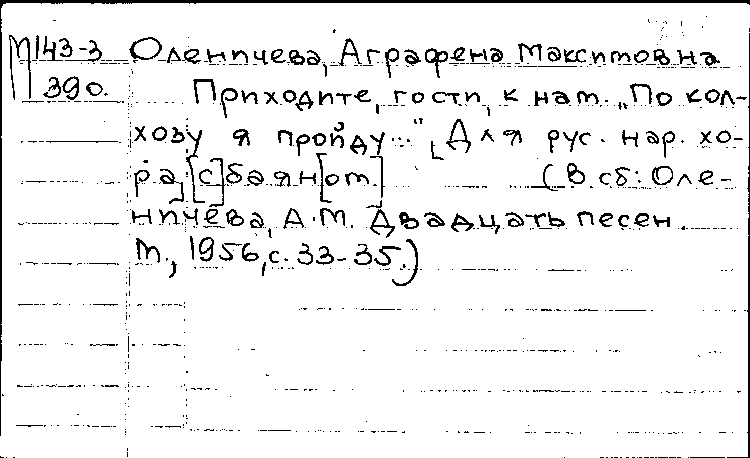 М143-3 Оленичева, Аграфена Максимовна
390. Приходите, гости, к нам. „По кол-
хозу я пройду..." [Для рус. нар. хо-
ра] [с] баян[ом.] (В сб: Оле-
ничева, А.М. Двадцать песен.
М., 1956, с. 33-35.)